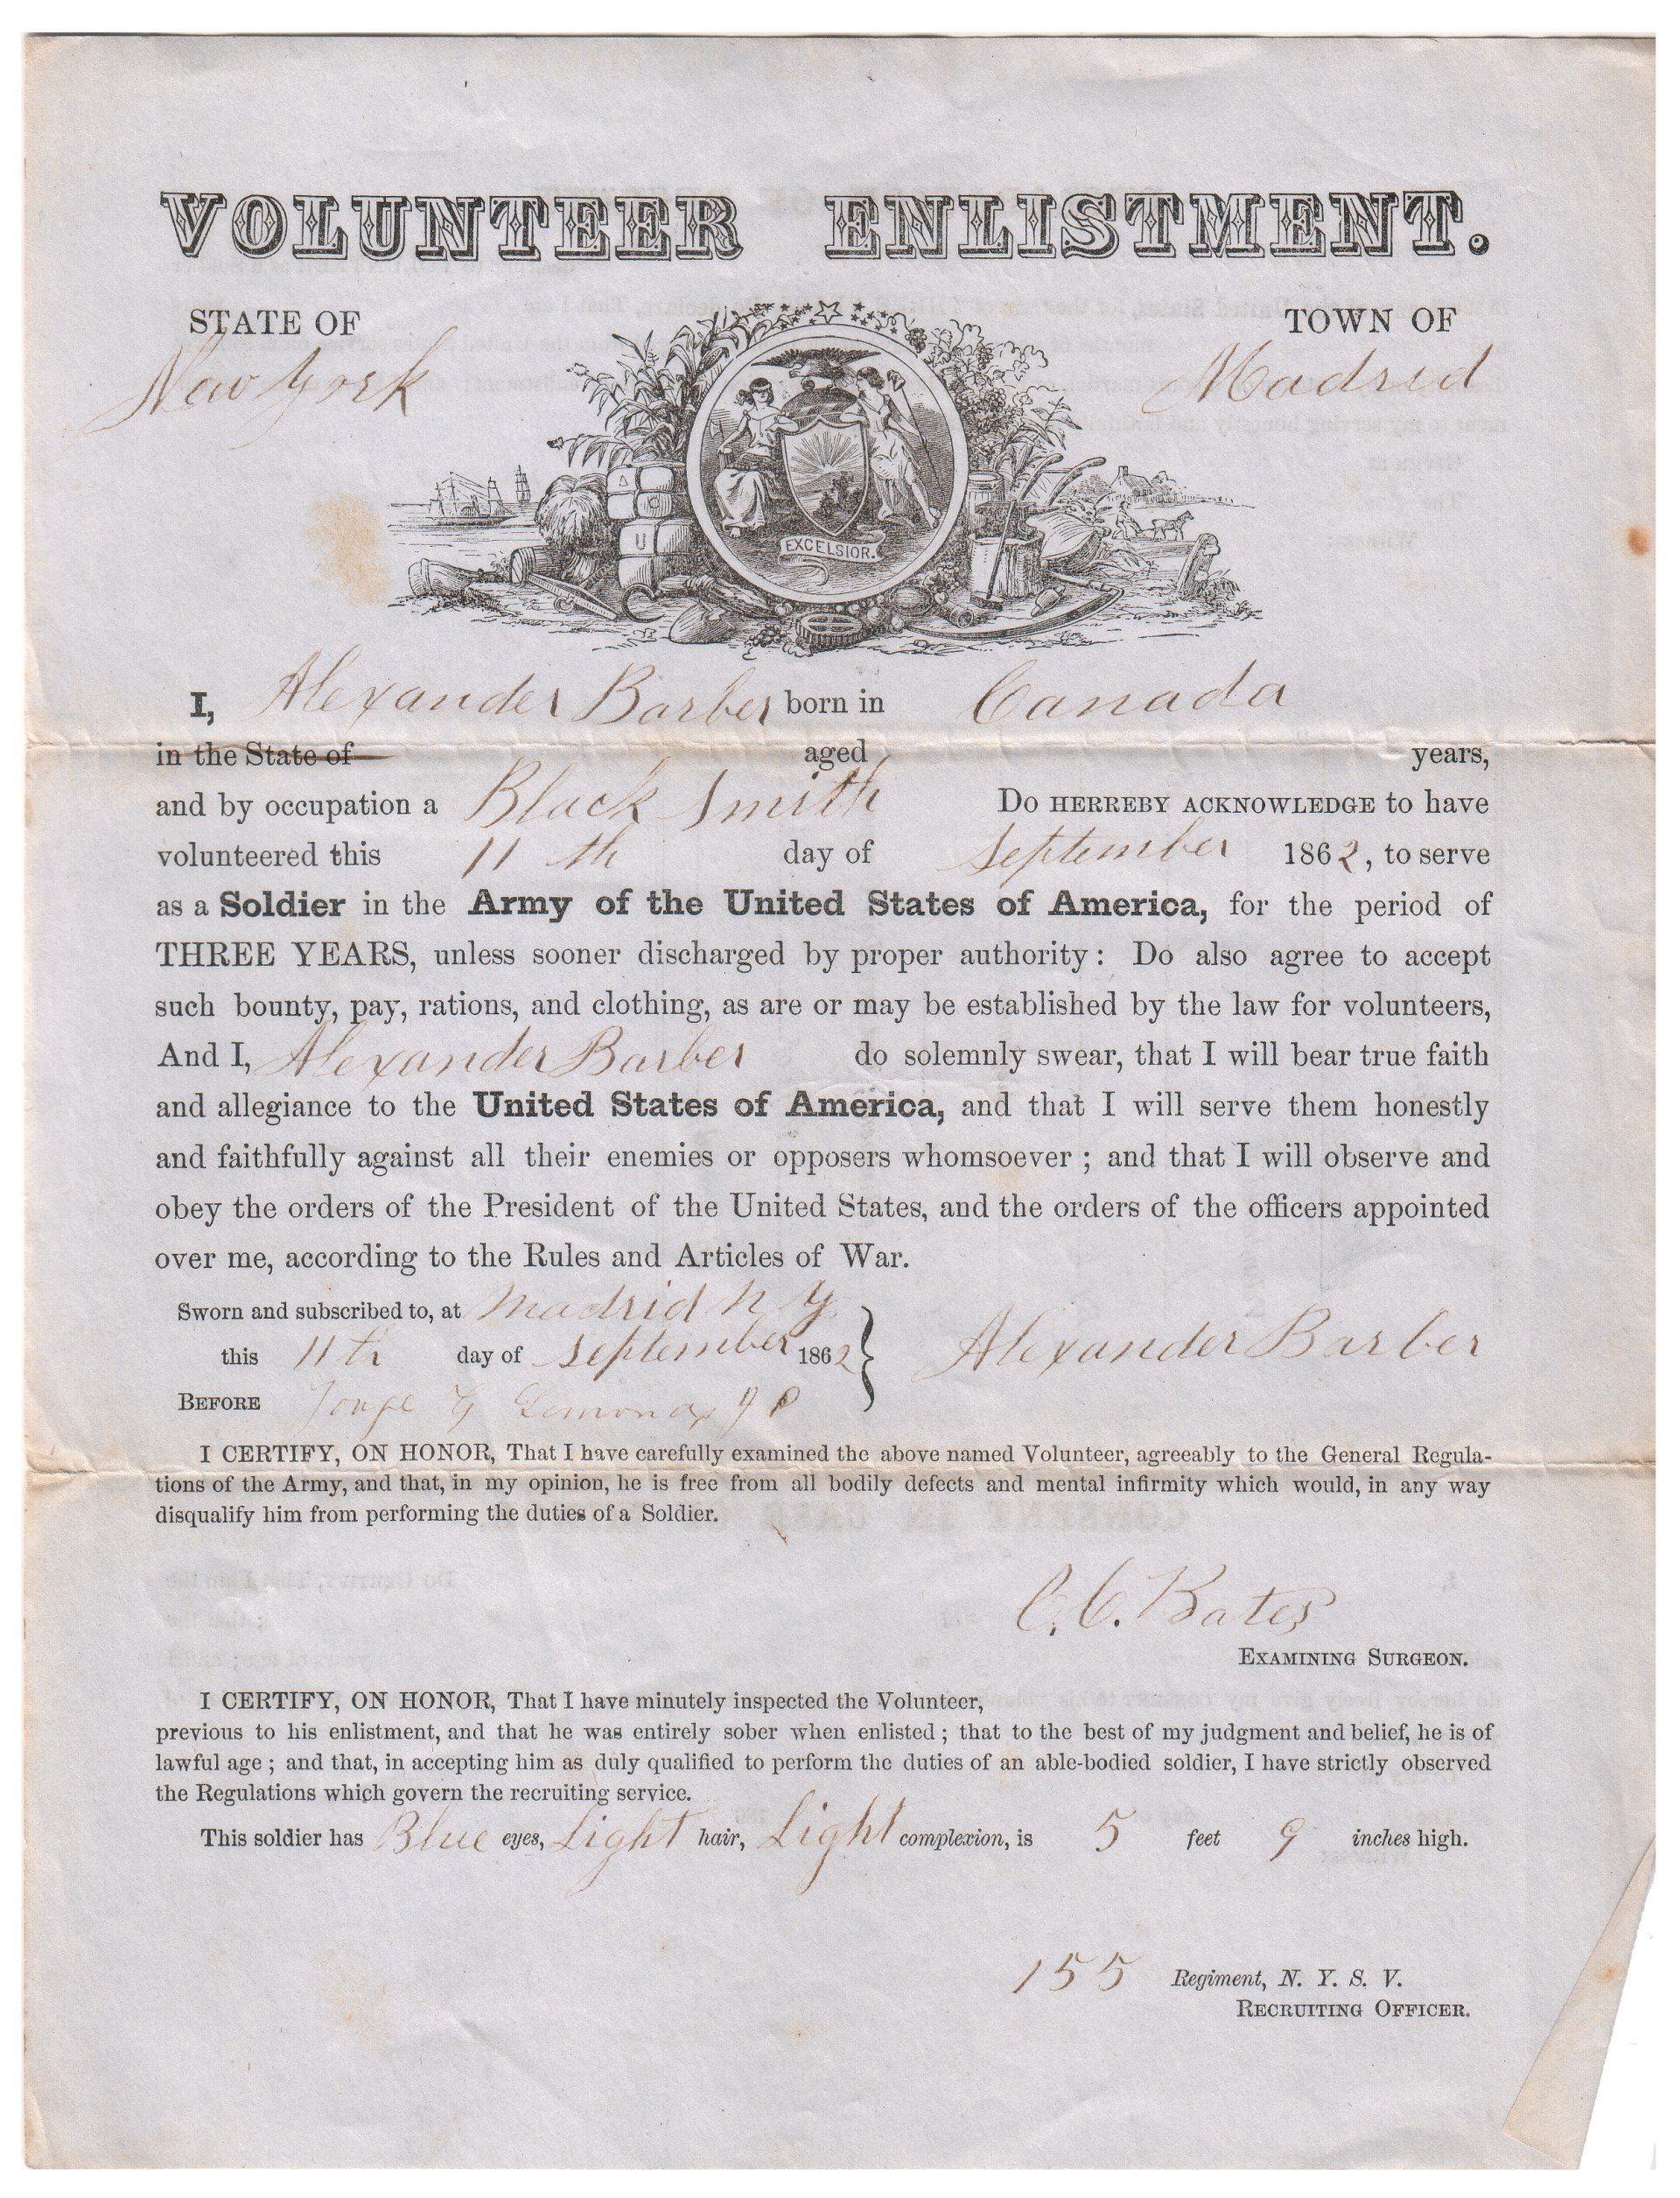 VOLUNTEER ENLISTMENT.
STATE OF TOWN OF
New York Madrid
EXCELSIOR.
I, Alexander Barber born in Canada
in the State of aged years,
and by occupation a Black Smith Do HERREBY ACKNOWLEDGE to have
volunteered this 11 th day of September 1862, to serve
as a Soldier in the Army of the United States of America, for the period of
THREE YEARS, unless sooner discharged by proper authority: Do also agree to accept
such bounty, pay, rations, and clothing, as are or may be established by the law for volunteers,
And I, Alexander Barber do solemnly swear, that I will bear true faith
and allegiance to the United States of America, and that I will serve them honestly
and faithfully against all their enemies or opposers whomsoever; and that I will observe and
obey the orders of the President of the United States, and the orders of the officers appointed
over me, according to the Rules and Articles of War.
Sworn and subscribed to, at Madrid N Y
this 11th day of September 1862 Alexander Barber
BEFORE
I CERTIFY, ON HONOR, That I have carefully examined the above named Volunteer, agreeably to the General Regula-
tions of the Army, and that, in my opinion, he is free from all bodily defects and mental infirmity which would, in any way
disqualify him from performing the duties of a Soldier.
C. C. Bates
EXAMINING SURGEON.
I CERTIFY, ON HONOR, That I have minutely inspected the Volunteer,
previous to his enlistment, and that he was entirely sober when enlisted; that to the best of my judgment and belief, he is of
lawful age; and that, in accepting him as duly qualified to perform the duties of an able-bodied soldier, I have strictly observed
the Regulations which govern the recruiting service.
This soldier has Blue eyes, Light hair, Light complexion, is 5 feet 9 inches high.
155 Regiment, N. Y. S. V.
RECRUITING OFFICER.